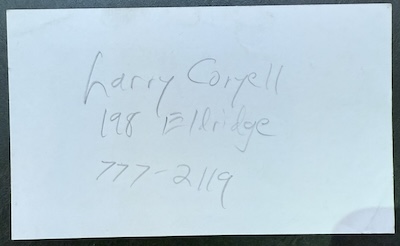 Larry Coryell
198 Eldridge
777-2119